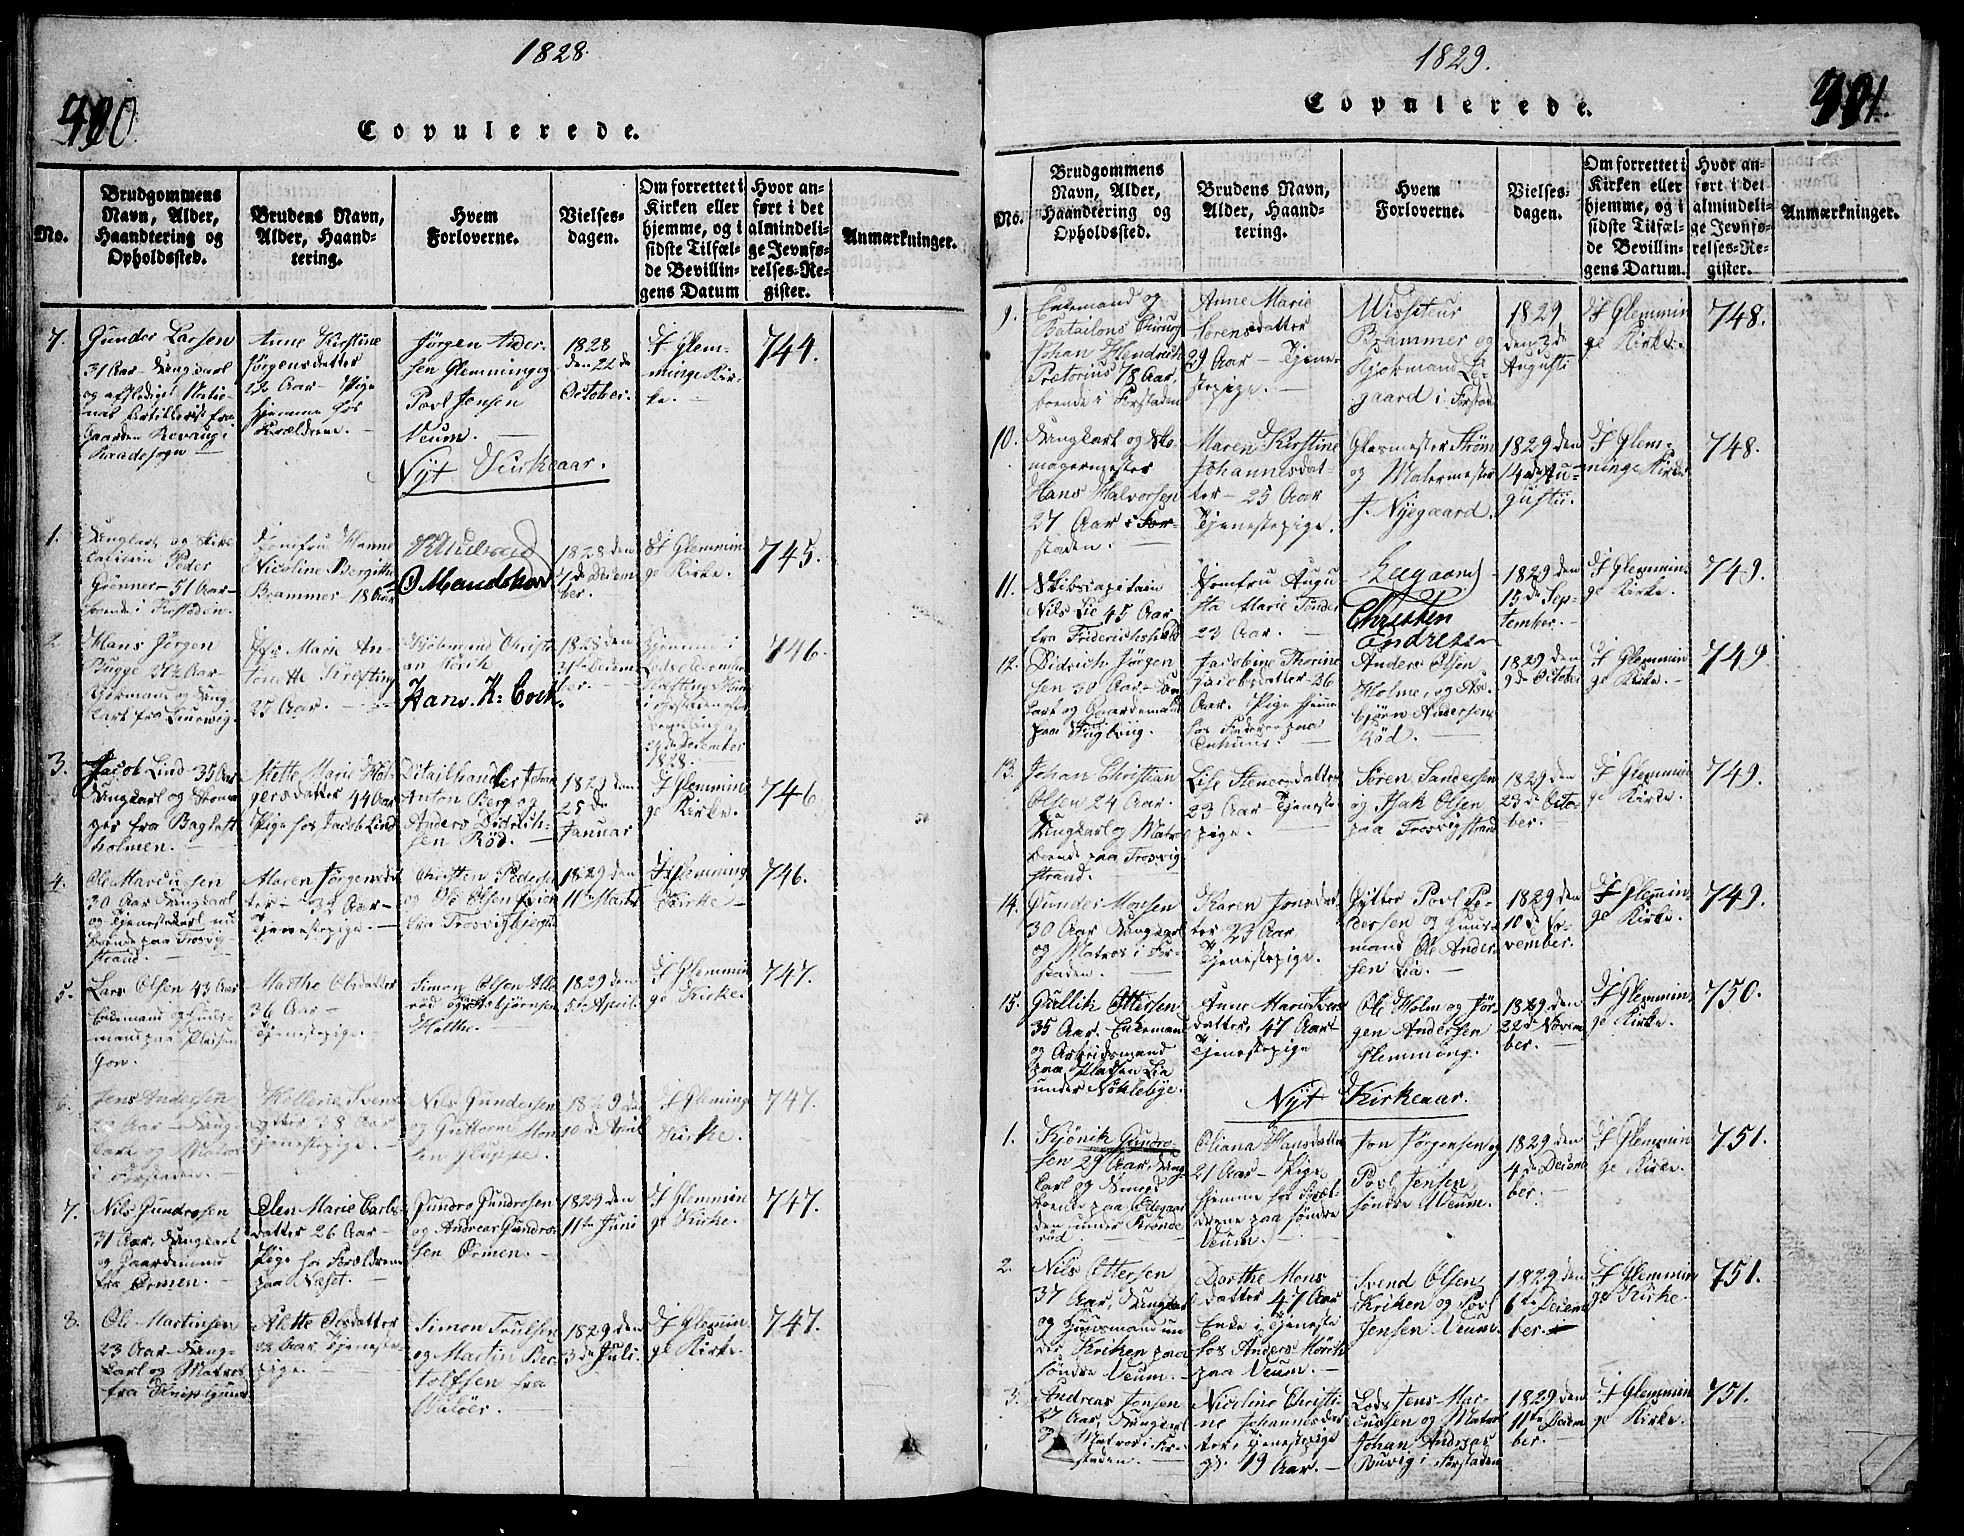 1828
400
Copulerede.
No.
Brudgommens
Navn, Alder,
Haandtering og
Opholdssted.
Brudens Navn,
Alder, Haand-
tering.
Hvem
Forloverne.
Vielses-
dagen.
Om forrettet i
Kirken eller
hjemme, og i
sidste Tilfæl-
de Bevillin-
gens Datum
Hvor an-
ført i det
almindeli-
ge Jevnfø-
relses-Re-
gister.
Anmærkninger.
7.
Gunder Larsen
31 Aar
Raadesogn
Anne Kirstine
Jørgensdatter
Aar - Pige
hjemme hos
Forældrene.
Jørgen Ander-
sen Glemminge
Povl Jensen
Veum.
1828
den 22de
October.
I Glem-
minge Kir-
ke.
744.
Nyt Kirkeaar.
1.
Peder
Grønner - 51 Aar
boende i Forstaden.
Jomfru Hanne
Nicoline Bergitte
Brammer 18 Aar
O Mandskov
1828 den
7de Decem-
ber.
I Glemmin-
ge Kirke.
745.
2
Hans Jørgen
Bugge 27½ Aar
Marie An-
tonette
25 Aar.
Kjøbmand Christi-
an
Hans. K: Cock.
1828 den
Decem-
ber.
Hjemme i
24de December
1828.
746.
3.
Jacob Lind 35 Aar
Ungkarl og
fra
holmen.
Mette Marie Hol-
gersdatter 44 Aar
Pige hos Jacob Lind
Detailhandler Johan
Anton Berg og
Anders Didrich-
sen Rød.
1829 den
25de
Januar
I Glemmin
ge Kirke.
746
4.
Ole Marcussen
30 Aar Ungkarl
og Tjenestekarl nu
boende paa Trosvig-
strand.
Maren Jørgensdat
ter - 32 Aar -
Tjenestepige.
Christen Peders
og Ole Olsen
fra Trosvig
1829 den
11te Marts
I Glemming
Kirke
746.
5.
Lars Olsen 43 Aar
Enkemand og Huus-
mand paa
Marthe Olsdatter
36 Aar
Tjenestepige.
Simon Olsen Alle
rød og Asbjørnsen
Holthe.
1829 den
5te April.
I Glemmin
ge Kirke.
747.
6.
Jens Andersen
22 Aar - Ung-
karl og Matros
i Forstaden.
Svens
datter 28 Aar
Tjenestepige.
Nils Gundersen
og Guttorm Mon
sen Gluppe.
1829 den
10de April
I Gleming
Kirke.
747.
7.
Nils Gundrosen
31 Aar, Ungkarl
og Gaardmand
fra Ørmen.
Elen Marie Carls-
datter 26 Aar
Pige hos Forældrene
paa Næset.
Gundro Gundrosen
og Andreas Gundro
sen Ørmen.
1829 den
11te Juni
I Glemmin
ge Kirke.
747.
8.
Ole Martinsen
23 Aar - Ung-
karl og Matros
fra
Mette Olsdatter
22 Aar, Tjeneste
pige.
Simon Trulsen
og Martin Ber
tolfsen fra
1829 den
3de Juli.
I Glemin
ge Kirke.
747.
1829.
401.
Copulerede.
No.
Brudgommens
Navn, Alder,
Haandtering og
Opholdssted.
Brudens Navn,
Alder, Haand-
tering.
Hvem
Forloverne.
Vielses-
dagen.
Om forrettet i
Kirken eller
hjemme, og i
sidste Tilfæl-
de Bevillin-
gens Datum.
Hvor an-
ført i det
almindeli-
ge Jevnfø-
relses-Re-
gister.
Anmærkninger.
9.
Enkemand og
Batailons Chirurg
Johan Hendrich
Prætorius 78 Aar,
boende i Forstaden
Anne Marie
Sørensdatter
29 Aar - Tjene-
stepige.
Wisiteur
Brammer og
Kjøbmand Lee-
gaard i Forstad
1829
den 2de
Augusti
I Glemmin
ge Kirke.
748.
10.
Ungkarl og Sko-
magermester
Hans Halvorsen
27 Aar i For-
staden.
Maren Kirstine
Johannesdat-
ter - 25 Aar
Tjenestepige.
Glasmester Strøm
og Malermester
J. Nyegaard.
1829 den
14de Au-
gustii.
I Glem-
minge Kirke
748.
11.
Skibscapitain
Nils Lie 45 Aar
fra Friderichshald
Jomfru Augu
sta Marie Tønder
23 Aar.
Leegaard
Christen
Endresen
1829 den
15de Sep-
tember.
I Glemmin-
ge Kirke.
749.
12.
Didrich Jørgen
sen 30 Aar - Ung
karl og Gaardmand
paa Fuglevig.
Jacobine Thorine
Jacobsdatter - 26
Aar. Pige hjemme
hos Faderen paa
Enhuus.
Anders Olsen
Holme, og As-
bjørn Andersen
Rød.
1829 den
9de October
I Glemmin
ge Kirke.
749
13.
Johan Christian
Olsen 24 Aar.
Ungkarl og Matros
boende paa Trosvig
strand.
Lise Stenersdatter
23 Aar - Tjeneste
pige.
Søren Sandersen
og Isak Olsen
paa Trosvigstrand
1829 den
23de Octo-
ber.
I Glemmin
ge Kirke.
749.
14.
Gunder Monsen
30 Aar Ungkarl
og Matros i For
staden.
Karen Jonsdat
ter 23 Aar
Tjenestepige.
Povl Pe-
dersen og Huus-
mand Ole Ander-
sen Lia.
1829 den
10de No-
vember.
I Glemin-
ge Kirke.
749.
15.
Gullik Ottersen
35 Aar. Enkemand
og Arbeidsmand
paa Pladsen Lia
under Nøkleby.
Anne Maria Iver
datter, 47 Aar
Tjenestepige
Ole Holm og Jør-
gen Andersen
Glemming.
1829 den
22de Novem
ber.
I Glemmin-
ge Kirke.
750.
Nyt Kirkeaar.
1.
Kjønik Gundro-
sen 29 Aar, Ung
karl og Smed
boende paa Ødegaar
den under Kronde
rød.
Oliana Hansdatter
21 Aar - Pige
hjemme hos Foræl-
drene paa søndre
Veum.
Jon Jørgensen og
Povl Jensen
søndre Veum.
1829 den
4de Decem
ber.
I Glemmin
ge Kirke.
751.
2.
Nils Ottersen
37 Aar, Ungkarl
og Huusmand un
der Kriken paa
søndre Veum.
Dorthe Mons
datter 47 Aar
Enke i Tjeneste
hos Anders
paa Veum.
Svend Olsen
Kriken og Povl
Jensen Veum.
1829 den
6te Decem
ber.
I Glemmin
ge Kirke.
751.
3.
Andreas Jensen
27 Aar, Ungkarl
og Matros i For-
staden.
Nicoline Christi-
ne Johannesdat
ter, Tjenestepige
gl. 19 Aar.
Lods Jens Mar-
cussen og Matros
Johan Andreas
Buvig i Forstaden
1829 den
11te Decem
ber.
I Glemmin
ge Kirke.
751.